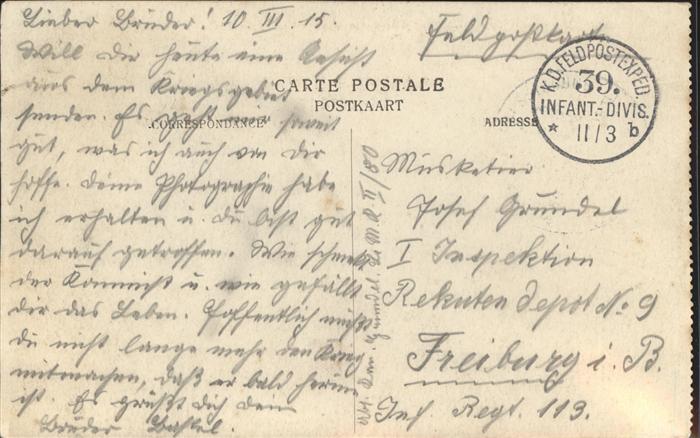 Lieber Brüder! 10. III. 15.
Will Dir heute eine Ansicht
aus dem Kriegsgebiet
senden. Es geht mir soweit
gut, was ich auch von Dir
hoffe. Deine Photographie habe
ich erhalten u. du bist gut
darauf getroffen. Wie schmeckt
der Kommiss u. wie gefällt
dir das Leben. Hoffentlich mußt
du nicht lange mehr den Krieg
mitmachen, daß er bald herum
ist. Es grüßt Dich Dein
Brüder
Feldpostkarte
CARTE POSTALE
POSTKAART
CORRESPONDANCE
ADRESSE
K.D. FELDPOSTEXPED.
39.
INFANT.-DIVIS.
* 11/3 b
Musketier
Josef Gründel
I Inspektion
Rekruten depot No 9
Freiburg i. B.
Inf. Regt. 113.